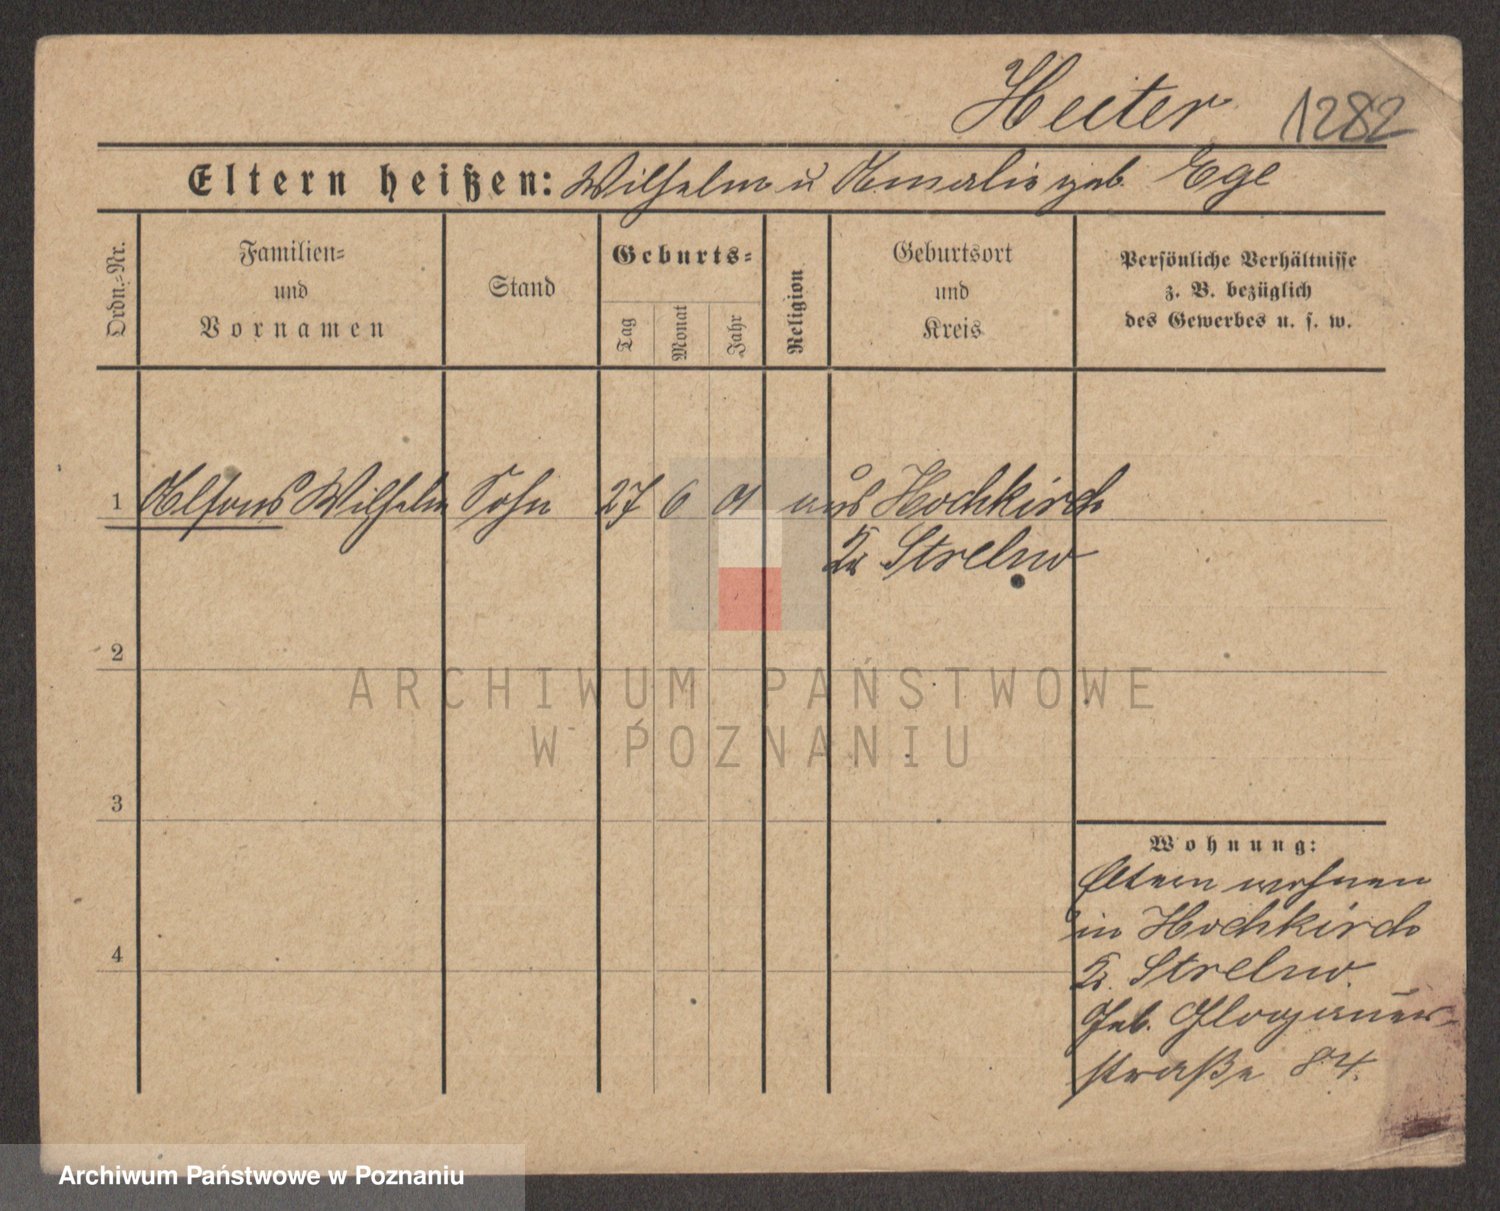 Heiter 1282
Eltern heißen: Wilhelm u Amalie geb. Ege
Ordn.-Nr.
Familien-
und
Vornamen
Stand
Geburts-
Tag
Monat
Jahr
Religion
Geburtsort
und
Kreis
Persönliche Verhältnisse
z. B. bezüglich
des Gewerbes u. s. w.
1 Alfons Wilhelm Sohn 27 6 01 aus Hochkirch
Kr Strelno
2
ARCHIWUM PAŃSTWOWE
W POZNANIU
3
Wohnung:
Eltern wohnen
in Hochkirch
Kr. Strelno.
4
Geb. Glogauer-
straße 84.
Archiwum Państwowe w Poznaniu